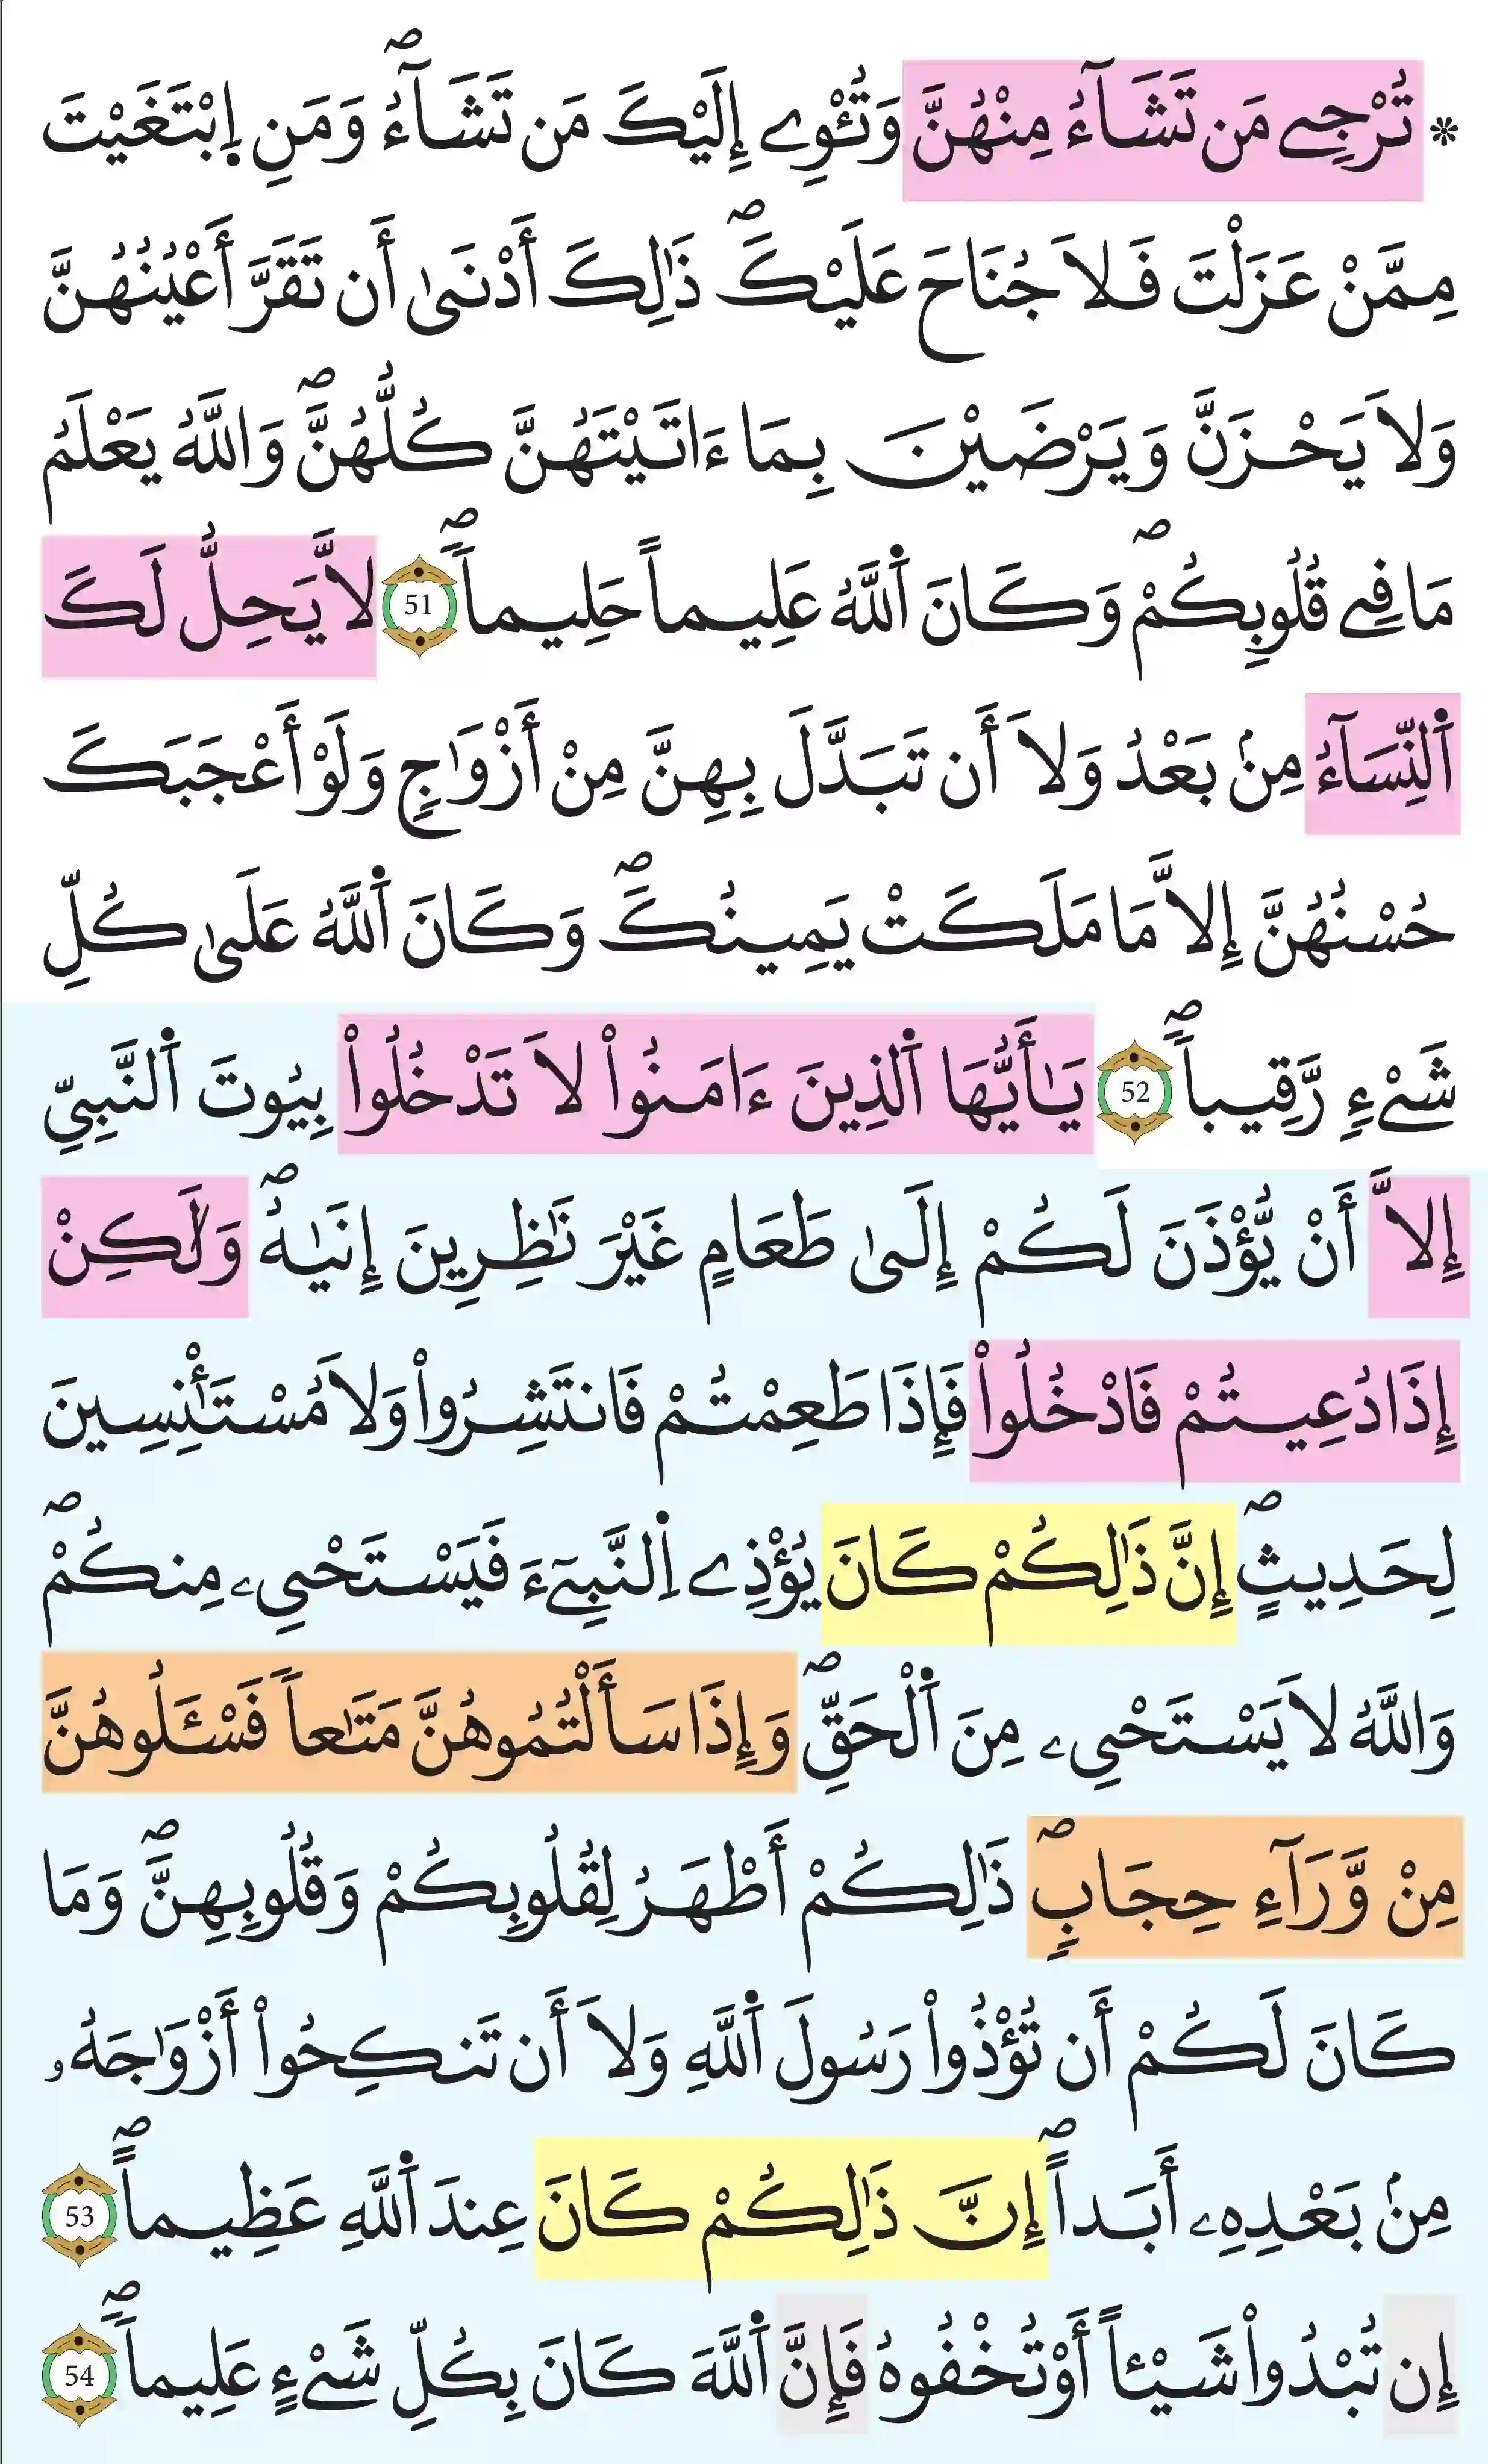 * تُرْجِے مَن تَشَآءُ مِنْهُنَّ وَتُـْٔوِے إِلَيْكَ مَن تَشَآءُۖ وَمَنِ اِ۪بْتَغَيْتَ
مِمَّنْ عَزَلْتَ فَلَا جُنَاحَ عَلَيْكَۖ ذَٰلِكَ أَدْنَىٰ أَن تَقَرَّ أَعْيُنُهُنَّ
وَلَا يَحْزَنَّ وَيَرْضَيْنَ بِمَا ءَاتَيْتَهُنَّ كُلُّهُنَّۖ وَاللَّهُ يَعْلَمُ
مَا فِے قُلُوبِكُمْۖ وَكَانَ اَ۬للَّهُ عَلِيماً حَلِيماًۖ 51 لَّا يَحِلُّ لَكَ
اَ۬لنِّسَآءُ مِنۢ بَعْدُ وَلَا أَن تَبَدَّلَ بِهِنَّ مِنْ أَزْوَٰجٖ وَلَوْ أَعْجَبَكَ
حُسْنُهُنَّ إِلَّا مَا مَلَكَتْ يَمِينُكَۖ وَكَانَ اَ۬للَّهُ عَلَىٰ كُلِّ
شَےْءٖ رَّقِيباًۖ 52 يَٰأَيُّهَا اَ۬لذِينَ ءَامَنُواْ لَا تَدْخُلُواْ بِيُوتَ اَ۬لنَّبِيِّ
إِلَّا أَنْ يُّؤْذَنَ لَكُمْ إِلَىٰ طَعَامٍ غَيْرَ نَٰظِرِينَ إِنَيٰهُۖ وَلَٰكِنْ
إِذَا دُعِيتُمْ فَادْخُلُواْ فَإِذَا طَعِمْتُمْ فَانتَشِرُواْ وَلَا مُسْتَـْٔنِسِينَ
لِحَدِيثٍۖ إِنَّ ذَٰلِكُمْ كَانَ يُؤْذِے اِ۬لنَّبِےٓءَ فَيَسْتَحْيِۦ مِنكُمْۖ
وَاللَّهُ لَا يَسْتَحْيِۦ مِنَ اَ۬لْحَقِّۖ وَإِذَا سَأَلْتُمُوهُنَّ مَتَٰعاً فَسْـَٔلُوهُنَّ
مِنْ وَّرَآءِ حِجَابٖۖ ذَٰلِكُمْ أَطْهَرُ لِقُلُوبِكُمْ وَقُلُوبِهِنَّۖ وَمَا
كَانَ لَكُمْ أَن تُؤْذُواْ رَسُولَ اَ۬للَّهِ وَلَا أَن تَنكِحُواْ أَزْوَٰجَهُۥ
مِنۢ بَعْدِهِۦ أَبَداًۖ إِنَّ ذَٰلِكُمْ كَانَ عِندَ اَ۬للَّهِ عَظِيماًۖ 53
إِن تُبْدُواْ شَيْـٔاً أَوْ تُخْفُوهُ فَإِنَّ اَ۬للَّهَ كَانَ بِكُلِّ شَےْءٍ عَلِيماًۖ 54